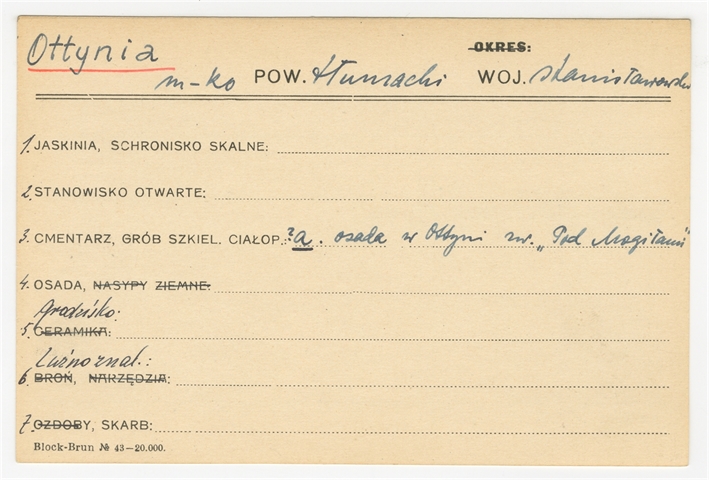 Ottynia
OKRES:
m-ko POW. tłumacki WOJ. stanisławowskie
1. JASKINIA, SCHRONISKO SKALNE:
2. STANOWISKO OTWARTE:
3. CMENTARZ, GRÓB SZKIEL. CIAŁOP.: ? a. osada w Ottyni zw. „Pod Mogiłami"
4. OSADA, NASYPY ZIEMNE:
Grodzisko:
5. CERAMIKA:
Luźno znal.:
6. BROŃ, NARZĘDZIA:
7. OZDOBY, SKARB:
Block-Brun № 43—20.000.